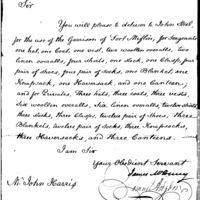 Sir
You will please to deliver to John Hall,
for the use of the Garrison of Fort Mifflin, for Sergeants
one hat, one Coat, one vest, two woollen overalls, two
linen overalls, four shirts, one stock, one Clasp, four
pair of shoes, four pair of socks, one Blanket, one
Knapsack, one Haversack, and one Canteen;
and for Privates, three hats, three coats, three vests,
six woollen overalls, six linen overalls, twelve shirts,
three stocks, three Clasps, twelve pair of Shoes, three
Blankets, twelve pair of socks, three Knapsacks,
three Haversacks, and three Canteens.
I am Sir
Your Obedient Servant
James McHenry
Mr. John Harris